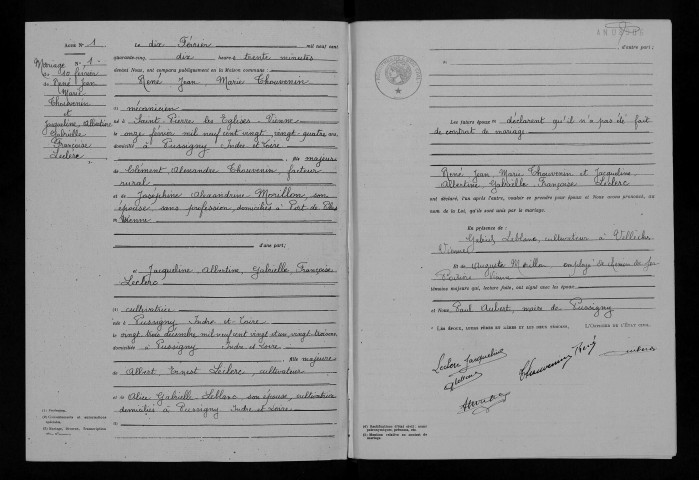 ACTE N° 1
Mariage N° 1
du 10 février
de René Jean
Marie
Thouvenin
et
Jacqueline Albertine
Gabrielle
Françoise
Leclerc
Le dix Février mil neuf cent
quarante-cinq, dix heures trente minutes
devant Nous, ont comparu publiquement en la Maison commune :
René Jean Marie Thouvenin
mécanicien
né à Saint Pierre les Eglises Vienne
le onze février mil neuf cent vingt, vingt quatre ans
domicilié à Pussigny Indre et Loire
fils majeur
de Clément Alexandre Thouvenin, facteur
rural
et de Joséphine Alexandrine Morillon, son
épouse, sans profession, domiciliés à Port de Piles
Vienne
d'une part;
et Jacqueline Albertine, Gabrielle Françoise
Leclerc
cultivatrice
née à Pussigny Indre et Loire
le vingt trois décembre mil neuf cent vingt et un, vingt trois ans
domiciliée à Pussigny Indre et Loire
fille majeure
de Albert, Ernest Leclerc, cultivateur
et de Alice Gabrielle Leblanc, son épouse, cultivatrice
domiciliés à Pussigny Indre et Loire
(1) Profession.
d'autre part;
Les futurs époux déclarent qu'il n'a pas été fait
de contrat de mariage
René Jean Marie Thouvenin et Jacqueline
Albertine Gabrielle Françoise Leclerc
ont déclaré, l'un après l'autre, vouloir se prendre pour époux et Nous avons prononcé, au
nom de la Loi, qu'ils sont unis par le mariage.
En présence de
Gabriel Leblanc, cultivateur à Vellèches
Vienne
et de Auguste Morillon employé de chemin de fer
Poitiers Vienne
témoins majeurs qui, lecture faite, ont signé avec les époux
et Nous Paul Aubert, maire de Pussigny
L'OFFICIER DE L'ÉTAT CIVIL,
Leclerc Jacqueline
Thouvenin René